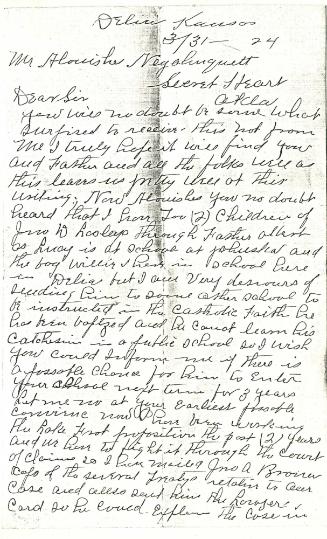 Delia Kansas
3/31 - 24
Mr Alouishe Negahnquett
Sacret Heart
Okla
Dear Sir
you will no doubt be some what
surprized to receive this not from
Me I truly hope it will find you
and Father and all the folks well as
this leaves us pritty well at this
writing. Now Alouishes you no doubt
heard that I have two (2) children of
Jno B through Father albert
is at school at
the boy Willis I have in school here
in Delia but I am very desirous of
sending him to some other school to
be instructed in the Catholic Faith he
has ben baptized and he canot learn his
Catchesim in a public school so I wish
you could inform me if there is
a possable chance for him to enter
your school next term for 3 years
let me no at your earliest possable
convinie now I have ben working
the proposition the past (2) years
and us hem to fight it through the court
of Claims so I have mailed Jno A Boover
copy of the several Treatys relative to our
case and allso sent him the Lawyer's
Card so he could Explain the Case in